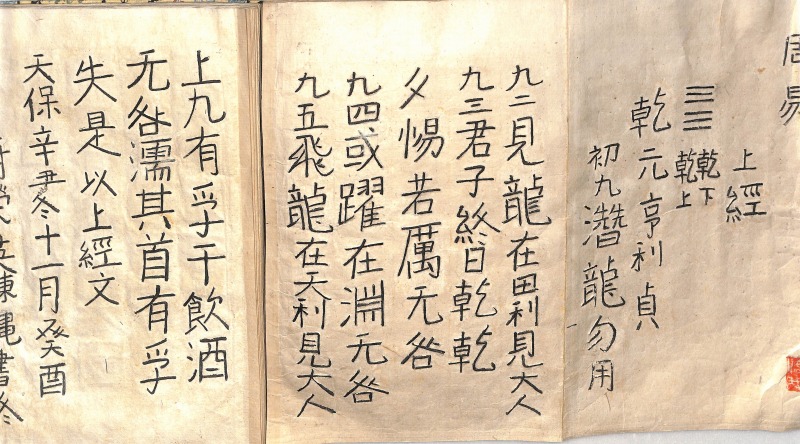 周易
上經
乾下
乾上
乾元亨利貞
初九潛龍勿用
九二見龍在田利見大人
九三君子終日乾乾
夕惕若厲无咎
九四或躍在淵无咎
九五飛龍在天利見大人
上九有孚于飲酒
无咎濡其首有孚
失是以上經文
天保辛丑冬十一月癸酉